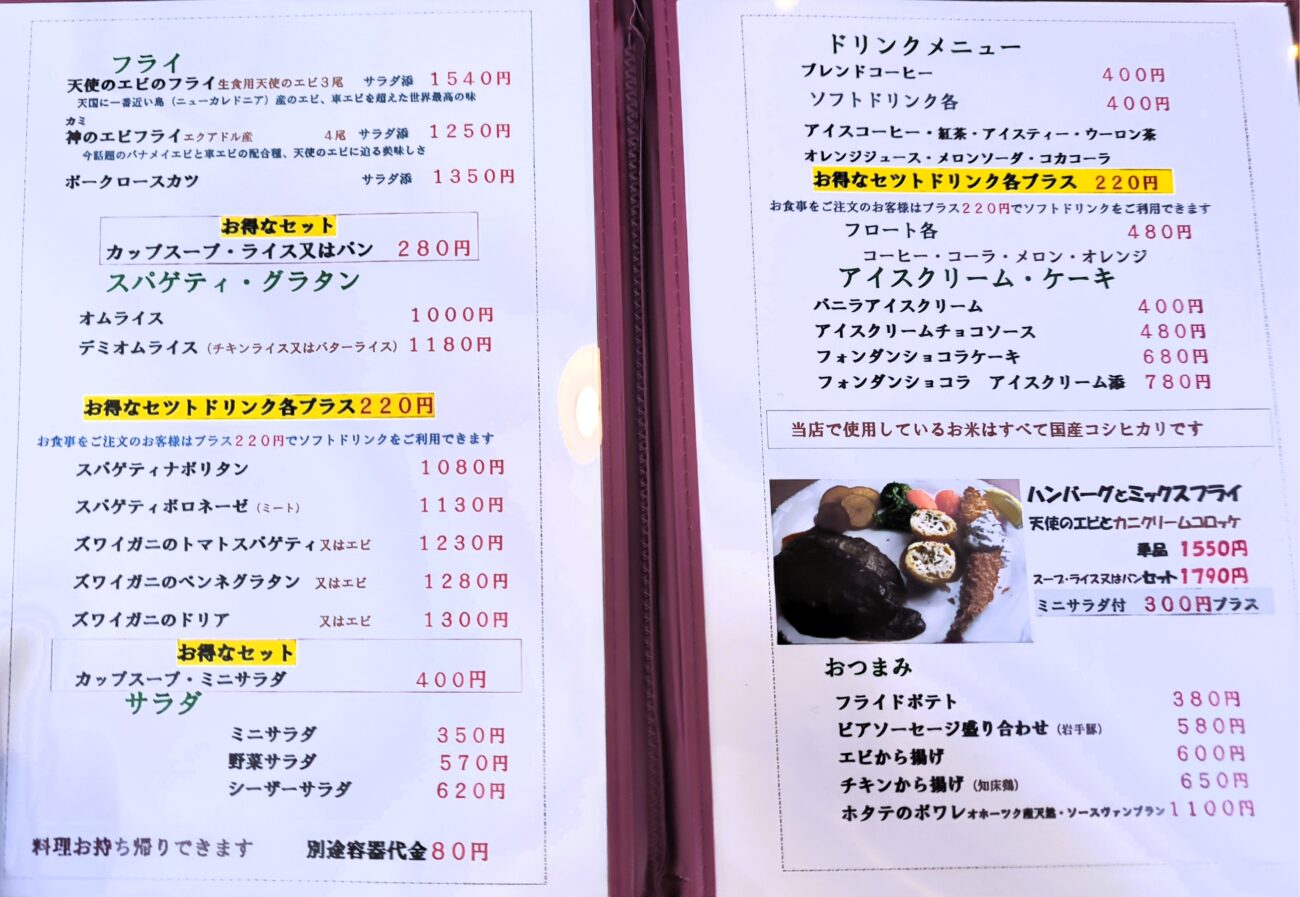 フライ
天使のエビのフライ生食用天使のエビ3尾 サラダ添 1540円
天国に一番近い島（ニューカレドニア）産のエビ、車エビを超えた世界最高の味
カミ
神のエビフライエクアドル産 4尾 サラダ添 1250円
今話題のバナメイエビと車エビの配合種、天使のエビに迫る美味しさ
ポークロースカツ サラダ添 1350円
お得なセット
カップスープ・ライス又はパン 280円
スパゲティ・グラタン
オムライス 1000円
デミオムライス（チキンライス又はバターライス）1180円
お得なセツトドリンク各プラス220円
お食事をご注文のお客様はプラス220円でソフトドリンクをご利用できます
スパゲティナポリタン 1080円
スパゲティボロネーゼ（ミート） 1130円
ズワイガニのトマトスパゲティ又はエビ 1230円
ズワイガニのペンネグラタン 又はエビ 1280円
ズワイガニのドリア 又はエビ 1300円
お得なセット
カップスープ・ミニサラダ 400円
サラダ
ミニサラダ 350円
野菜サラダ 570円
シーザーサラダ 620円
料理お持ち帰りできます 別途容器代金80円
ドリンクメニュー
ブレンドコーヒー 400円
ソフトドリンク各 400円
アイスコーヒー・紅茶・アイスティー・ウーロン茶
オレンジジュース・メロンソーダ・コカコーラ
お得なセツトドリンク各プラス 220円
お食事をご注文のお客様はプラス220円でソフトドリンクをご利用できます
フロート各 480円
コーヒー・コーラ・メロン・オレンジ
アイスクリーム・ケーキ
バニラアイスクリーム 400円
アイスクリームチョコソース 480円
フォンダンショコラケーキ 680円
フォンダンショコラ アイスクリーム添 780円
当店で使用しているお米はすべて国産コシヒカリです
ハンバーグとミックスフライ
天使のエビとカニクリームコロッケ
単品 1550円
スープ・ライス又はパンセット1790円
ミニサラダ付 300円プラス
おつまみ
フライドポテト 380円
ビアソーセージ盛り合わせ（岩手豚） 580円
エビから揚げ 600円
チキンから揚げ（知床鶏） 650円
ホタテのポワレオホーツク産天然・ソースヴァンブラン1100円